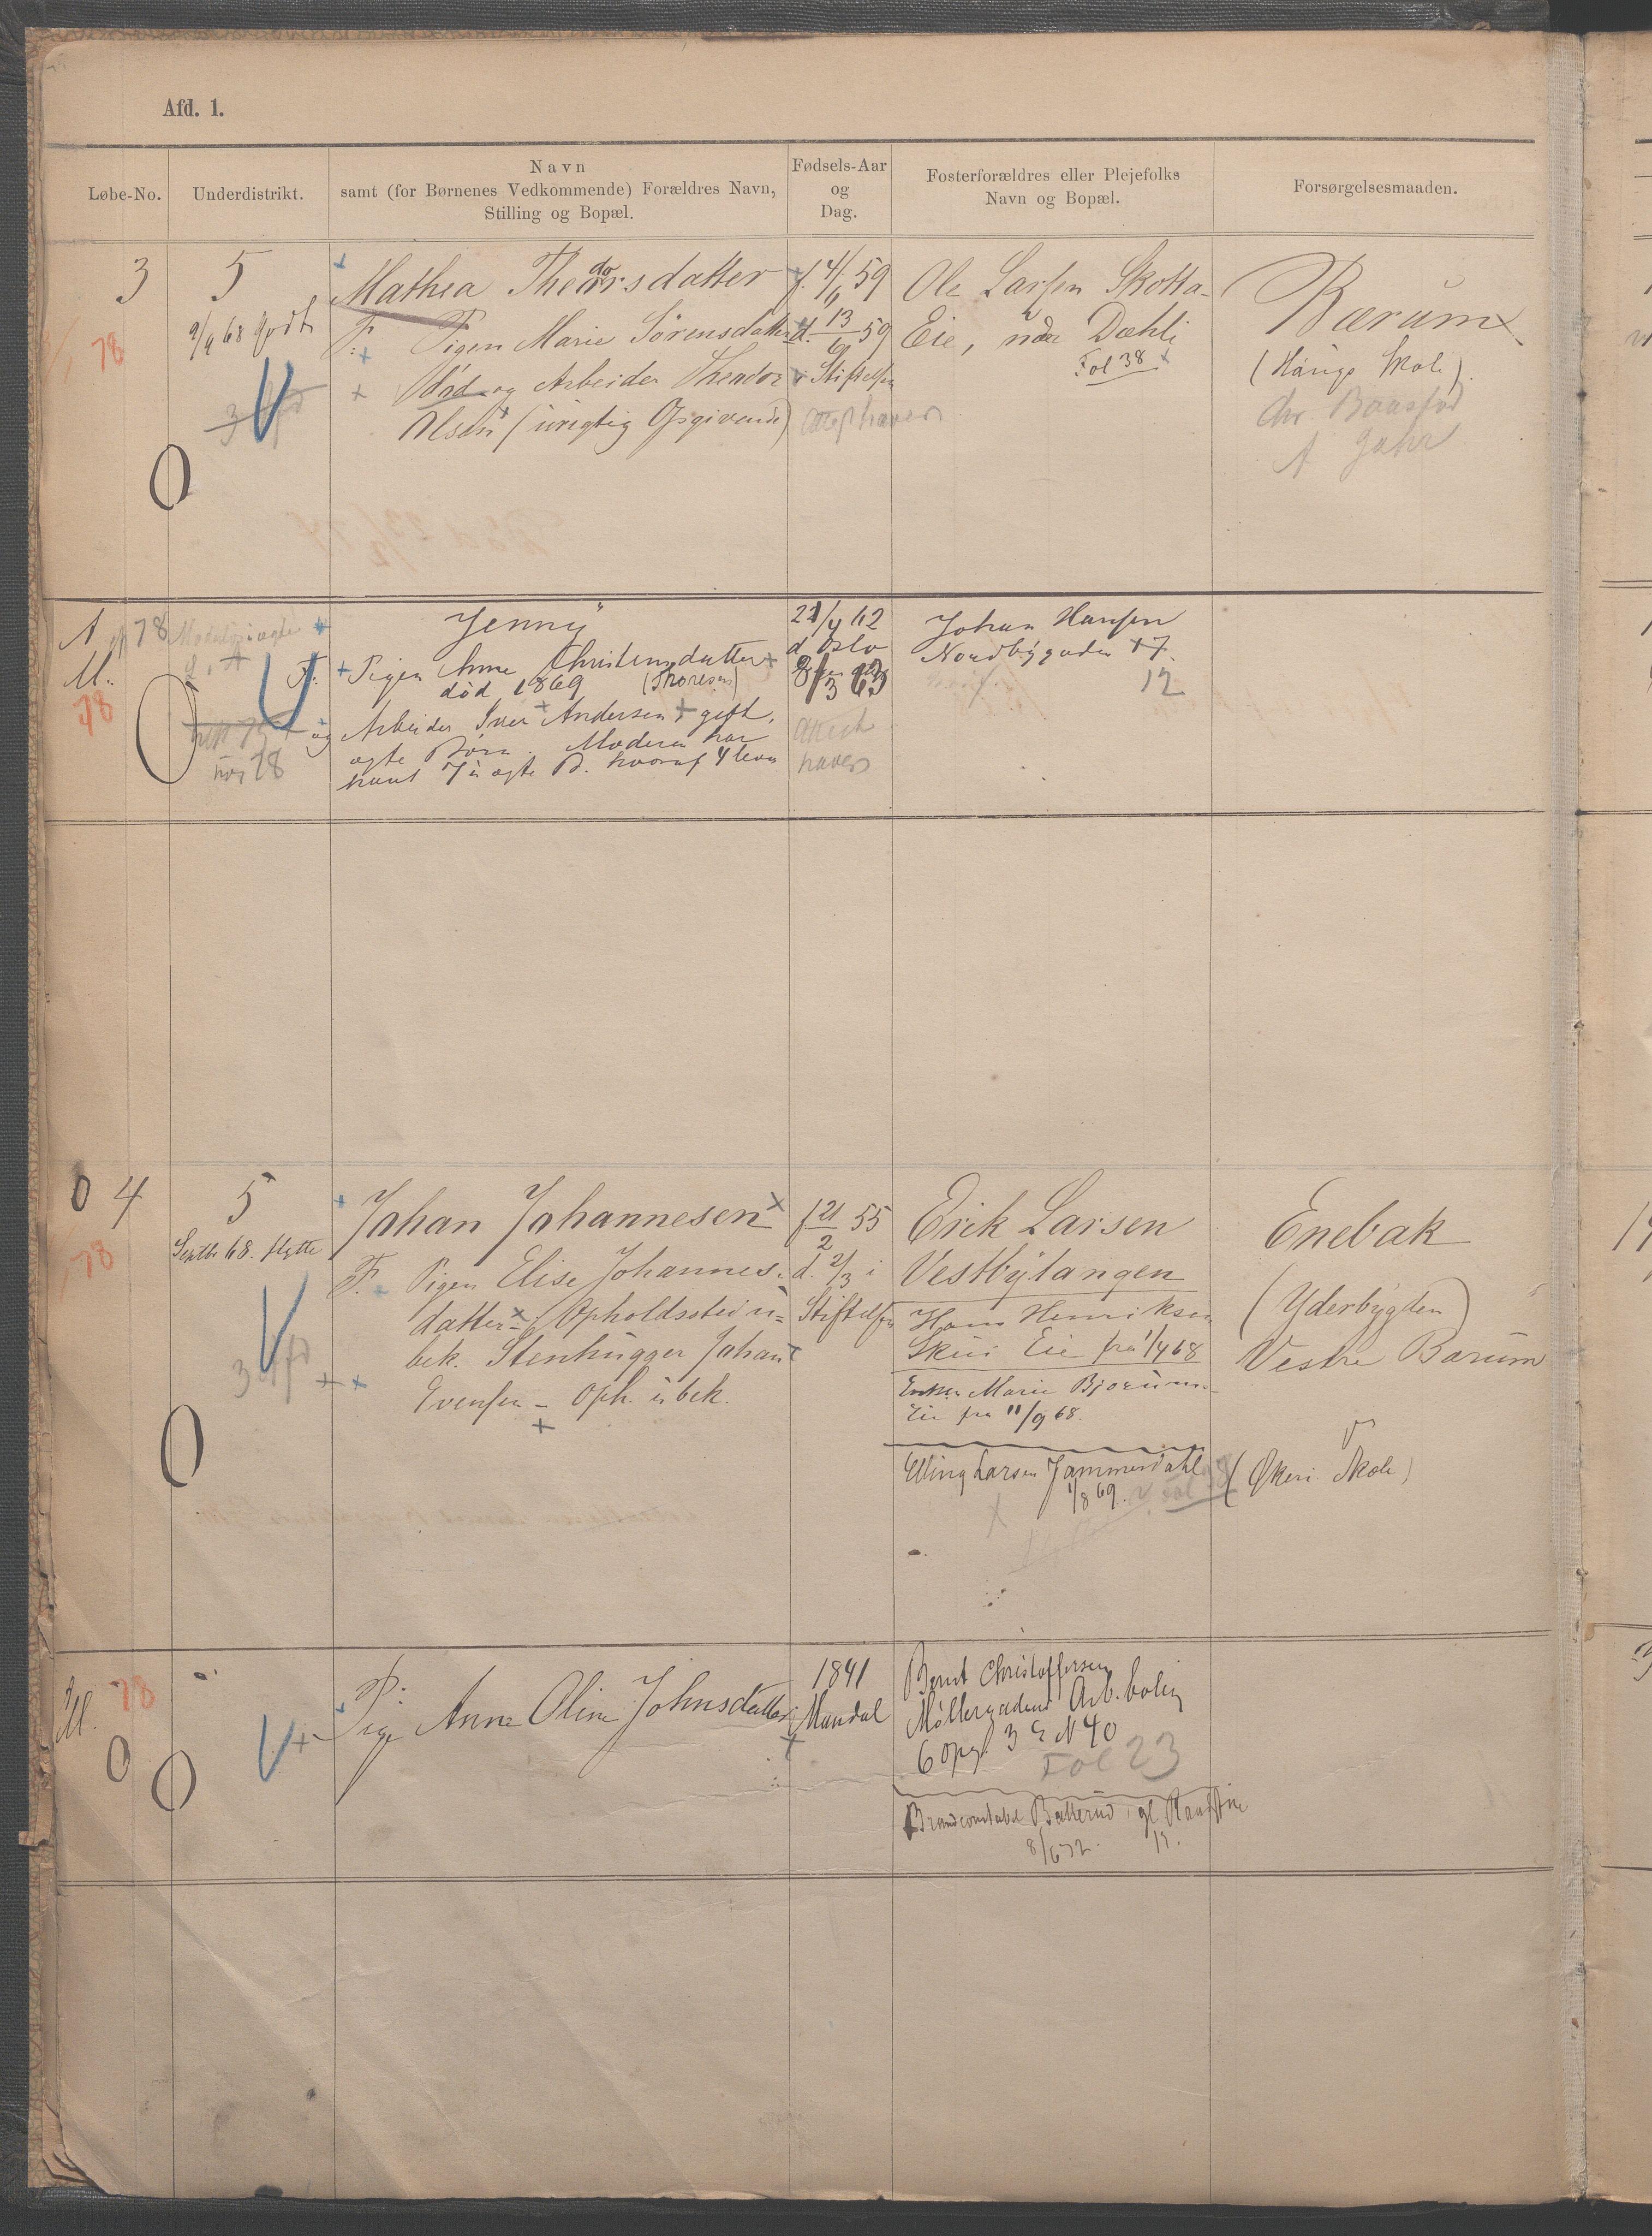 Afd. 1.
Løbe-No.
Underdistrikt.
Navn
samt (for Børnenes Vedkommende) Forældres Navn,
Stilling og Bopæl.
Fødsels-Aar
og
Dag.
Fosterforældres eller Plejefolks
Navn og Bopæl.
Forsørgelsesmaaden.
3
78
5
9/9 68 godt
Mathea Theodorsdatter
F: Pigen Marie Sørensdatter
død og Arbeider Theodor
Olsen (urigtig Opgivende)
f. 4/6 59
d. 13/6 59
i Stiftelsen
Attest haves
Ole Larsen Skotta-
Eie, under Dæhli
Fol 38
Bærum
(Haugs Skole)
A
M.
78
78
Jenny
F: Pigen Anne Christensdatter
død 1869 (Thoresen)
og Arbeider Iver Andersen, gift,
ægte Børn. Moderen har
havt 7 u ægte B. hvoraf 4 leve
21/4 62
d Oslo
8/3 63
Attest
haves
Johan Hansen
Nordbygaden 17.
12
0 4
78
5
Septbr 68. flytte
Johan Johannesen
F. Pigen Elise Johannes-
datter - Opholdssted u-
bek. Stenhugger Johan
Evensen - Oph. ubek.
f. 21/2 55
d. 2/3 i
Stiftelsen
Erik Larsen
Vestbylangen
Hans Henriksen
Skui Eie fra 1/4 68
Enken Marie Bjørum-
Eie fra 11/9 68.
Elling Larsen Jammerdahl
1/8 69.
Enebak
(Yderbygden)
Vestre Bærum
(Skui Skole)
M.
78
Pige Anne Oline Johnsdatter
1841
Mandal
Bernt Christoffersen
Møllergadens Arb. bolig
6 opg. 3 E N 40
Fol 23
Brandconstabel Bætterud gl Raadstue
8/6 72. 19.